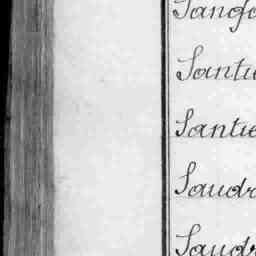 Sanfo
Santi
Santi
Saudr
Saudr